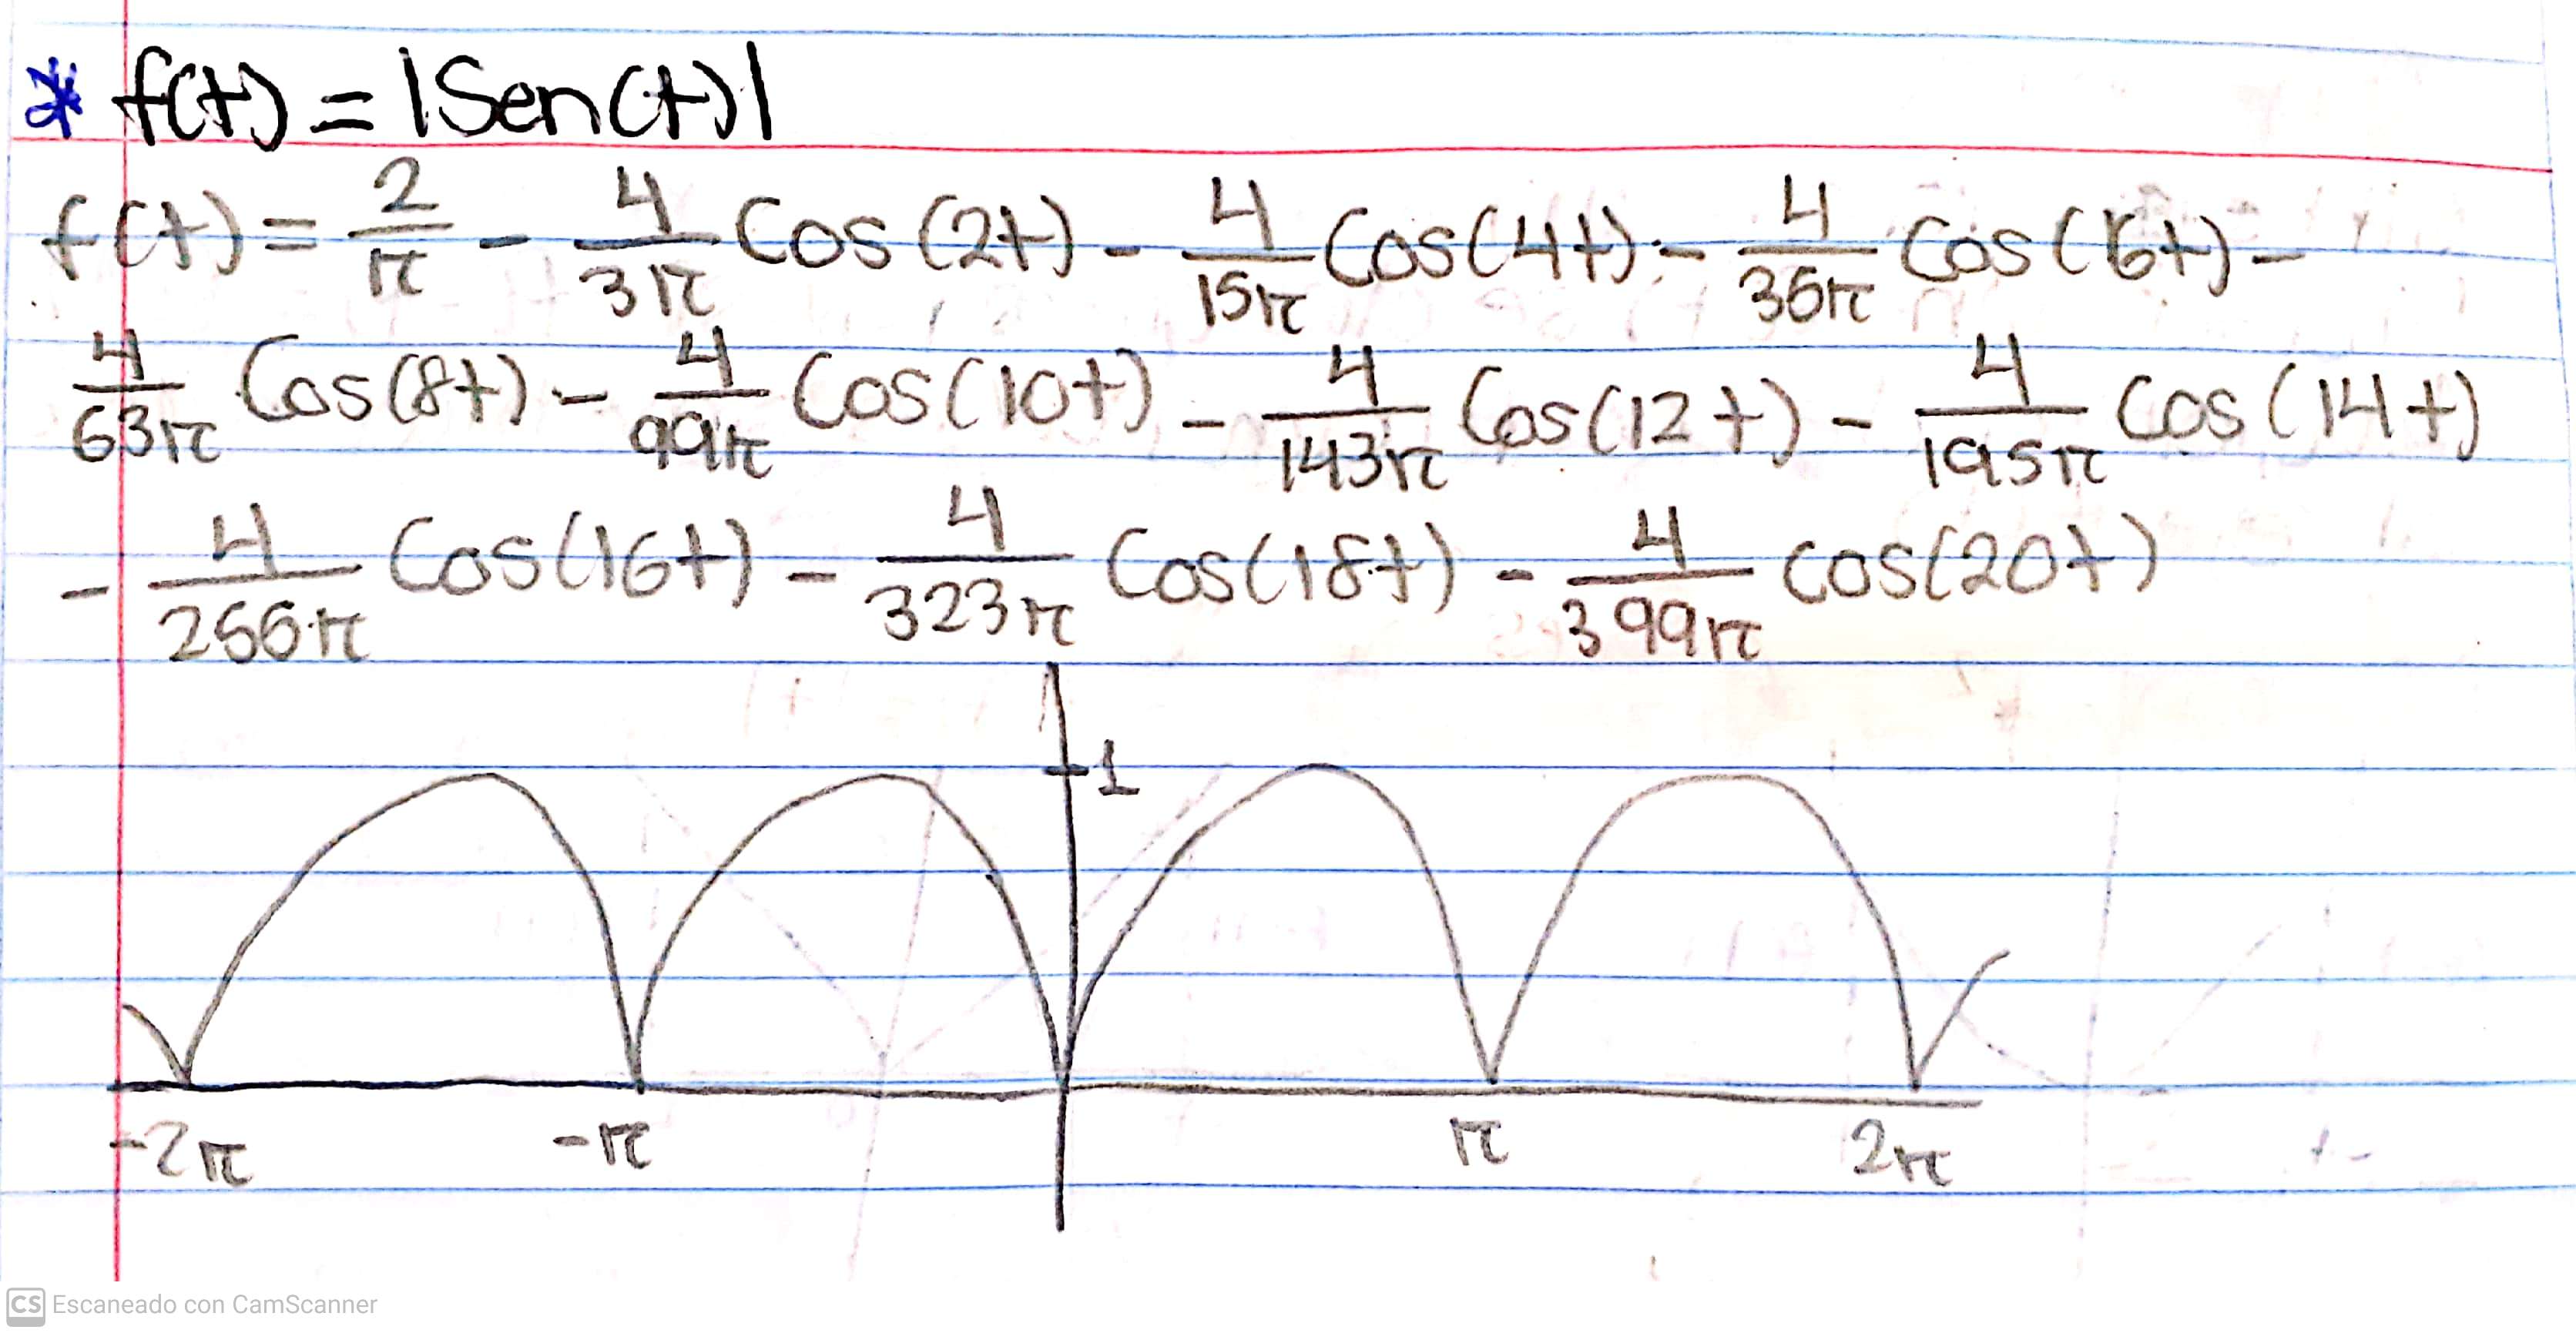 * f(t) = |Sen(t)|
f(t) = 2/π - 4/3π Cos(2t) - 4/15π Cos(4t) - 4/36π Cos(6t) -
4/63π Cos(8t) - 4/99π Cos(10t) - 4/143π Cos(12t) - 4/195π Cos(14t)
- 4/255π Cos(16t) - 4/323π Cos(18t) - 4/399π Cos(20t)
1
-2π -π π 2π
CS Escaneado con CamScanner